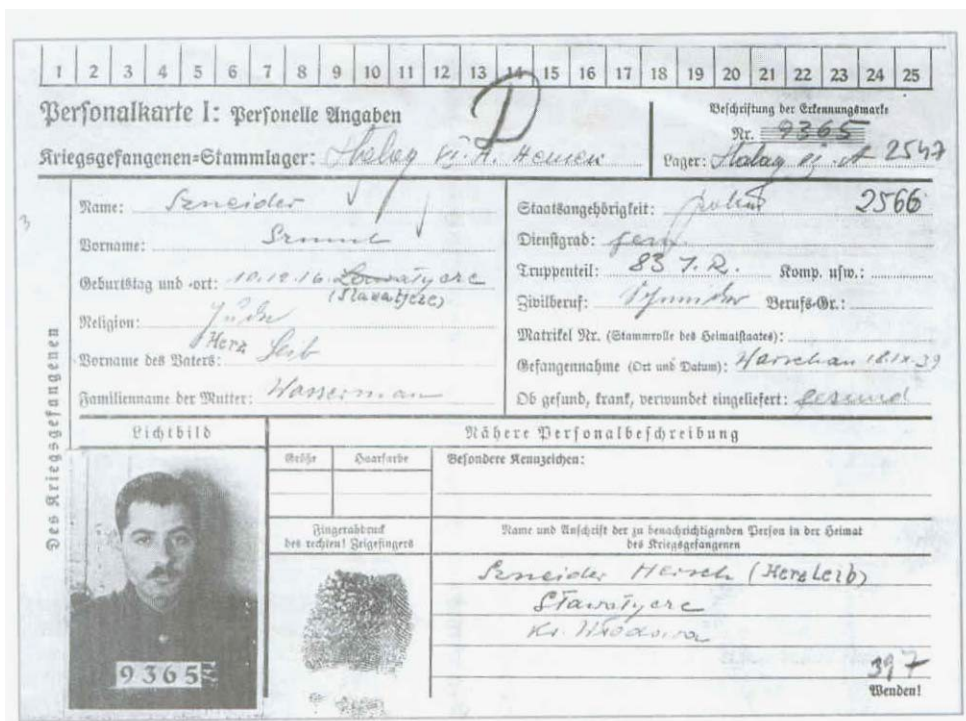 1 2 3 4 5 6 7 8 9 10 11 12 13 14 15 16 17 18 19 20 21 22 23 24 25
D
Personalkarte I: Personelle Angaben
Kriegsgefangenen-Stammlager: Stalag VI A. Hemer
Beschriftung der Erkennungsmarke
Nr. 9365
Lager: Stalag VI A 2547
Des Kriegsgefangenen
Name: Szneider
Vorname: Szmul
Geburtstag und -ort: 10.12.16.
(Slawatycze)
Religion: Jude
Herz Leib
Vorname des Vaters:
Familienname der Mutter: Wasserman
Staatsangehörigkeit: 2566
Dienstgrad:
Truppenteil: 83 I.R. Komp. usw.:
Zivilberuf: Schneider Berufs-Gr.:
Matrikel Nr. (Stammrolle des Heimatstaates):
Gefangennahme (Ort und Datum): Warschau 18.IX.39
Ob gesund, krank, verwundet eingeliefert: gesund
Lichtbild
9365
Nähere Personalbeschreibung
Größe Haarfarbe Besondere Kennzeichen:
Fingerabdruck
des rechten! Zeigefingers
Name und Anschrift der zu benachrichtigenden Person in der Heimat
des Kriegsgefangenen
Szneider Hersch (Herz Leib)
Sławatycze
Kr. Włodawa
397
Wenden!